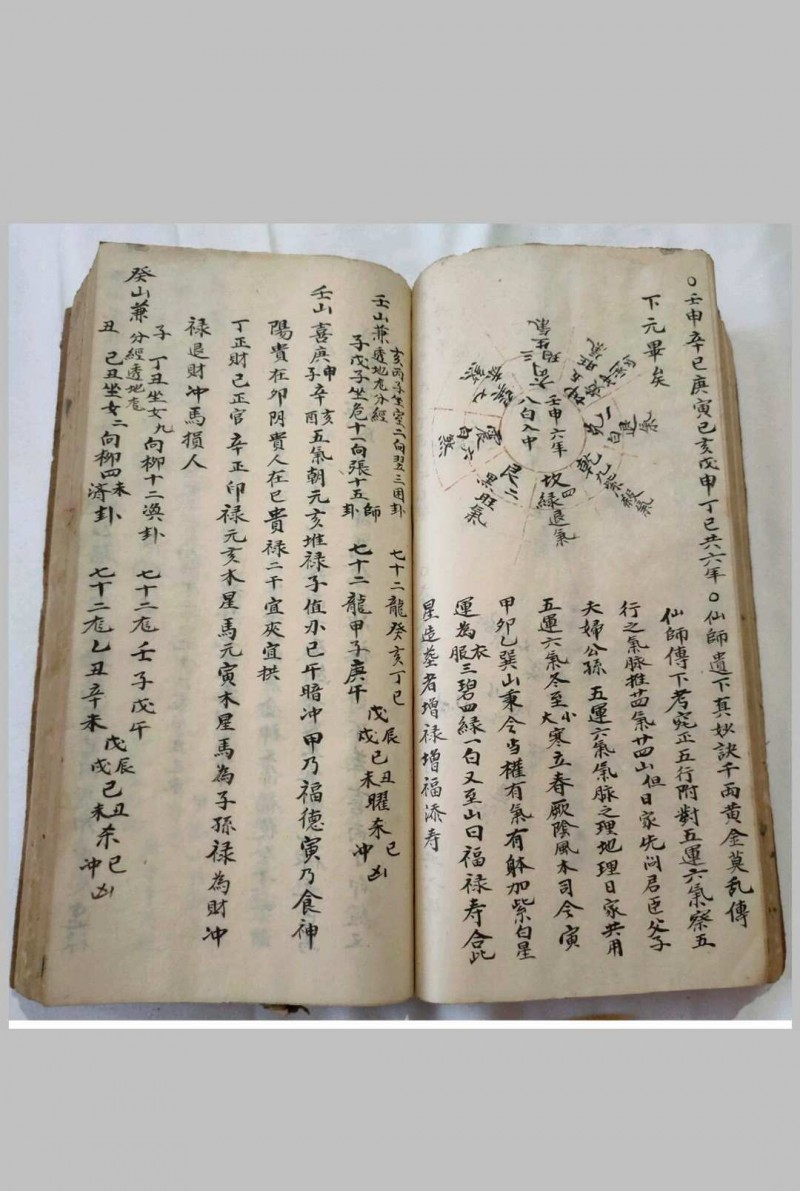 ○壬申辛巳庚寅己亥戊申丁巳共六年○仙師遺下真妙訣千両黄金莫乱傳
下元畢矣
仙師傳下考究正五行附對五運六氣察五
行之氣脉推苗氣廿四山但日家先问君臣父子
夫婦公孫五運六氣氣脉之理地理日家共用
五運六氣冬至小大寒立春厥陰風木司令寅
甲卯乙巽山秉令当權有氣有躰加紫白星
運為衣服三碧四緑一白又至山曰福禄寿合此
星造塟者增禄增福添寿
壬申六年
八白入中
坎四緑退氣
艮二黑旺氣
震六白煞
乾九紫
兌一白進氣
壬山兼
亥丙子坐室二向翌三困卦 七十二龍癸亥丁巳
透地龙分經
子戊子坐危十一向張十五師卦 七十二龍甲子庚午
戊辰戌己丑未曜杀巳冲凶
壬山喜庚申子辛亥酉五氣朝元亥堆禄子值刃巳午暗冲甲乃福德寅乃食神
陽貴在卯阴貴人在巳貴禄二干宜夾宜拱
丁正財己正官辛正印禄元亥木星馬元寅木星馬為子孫禄為財冲
禄退財冲馬損人
癸山兼
子丁丑坐女九向柳十二渙卦 七十二龙壬子戊午
分經透地龙
丑己丑坐女二向柳四未済卦 七十二龙乙丑辛未
戊辰戌己丑未杀巳冲凶